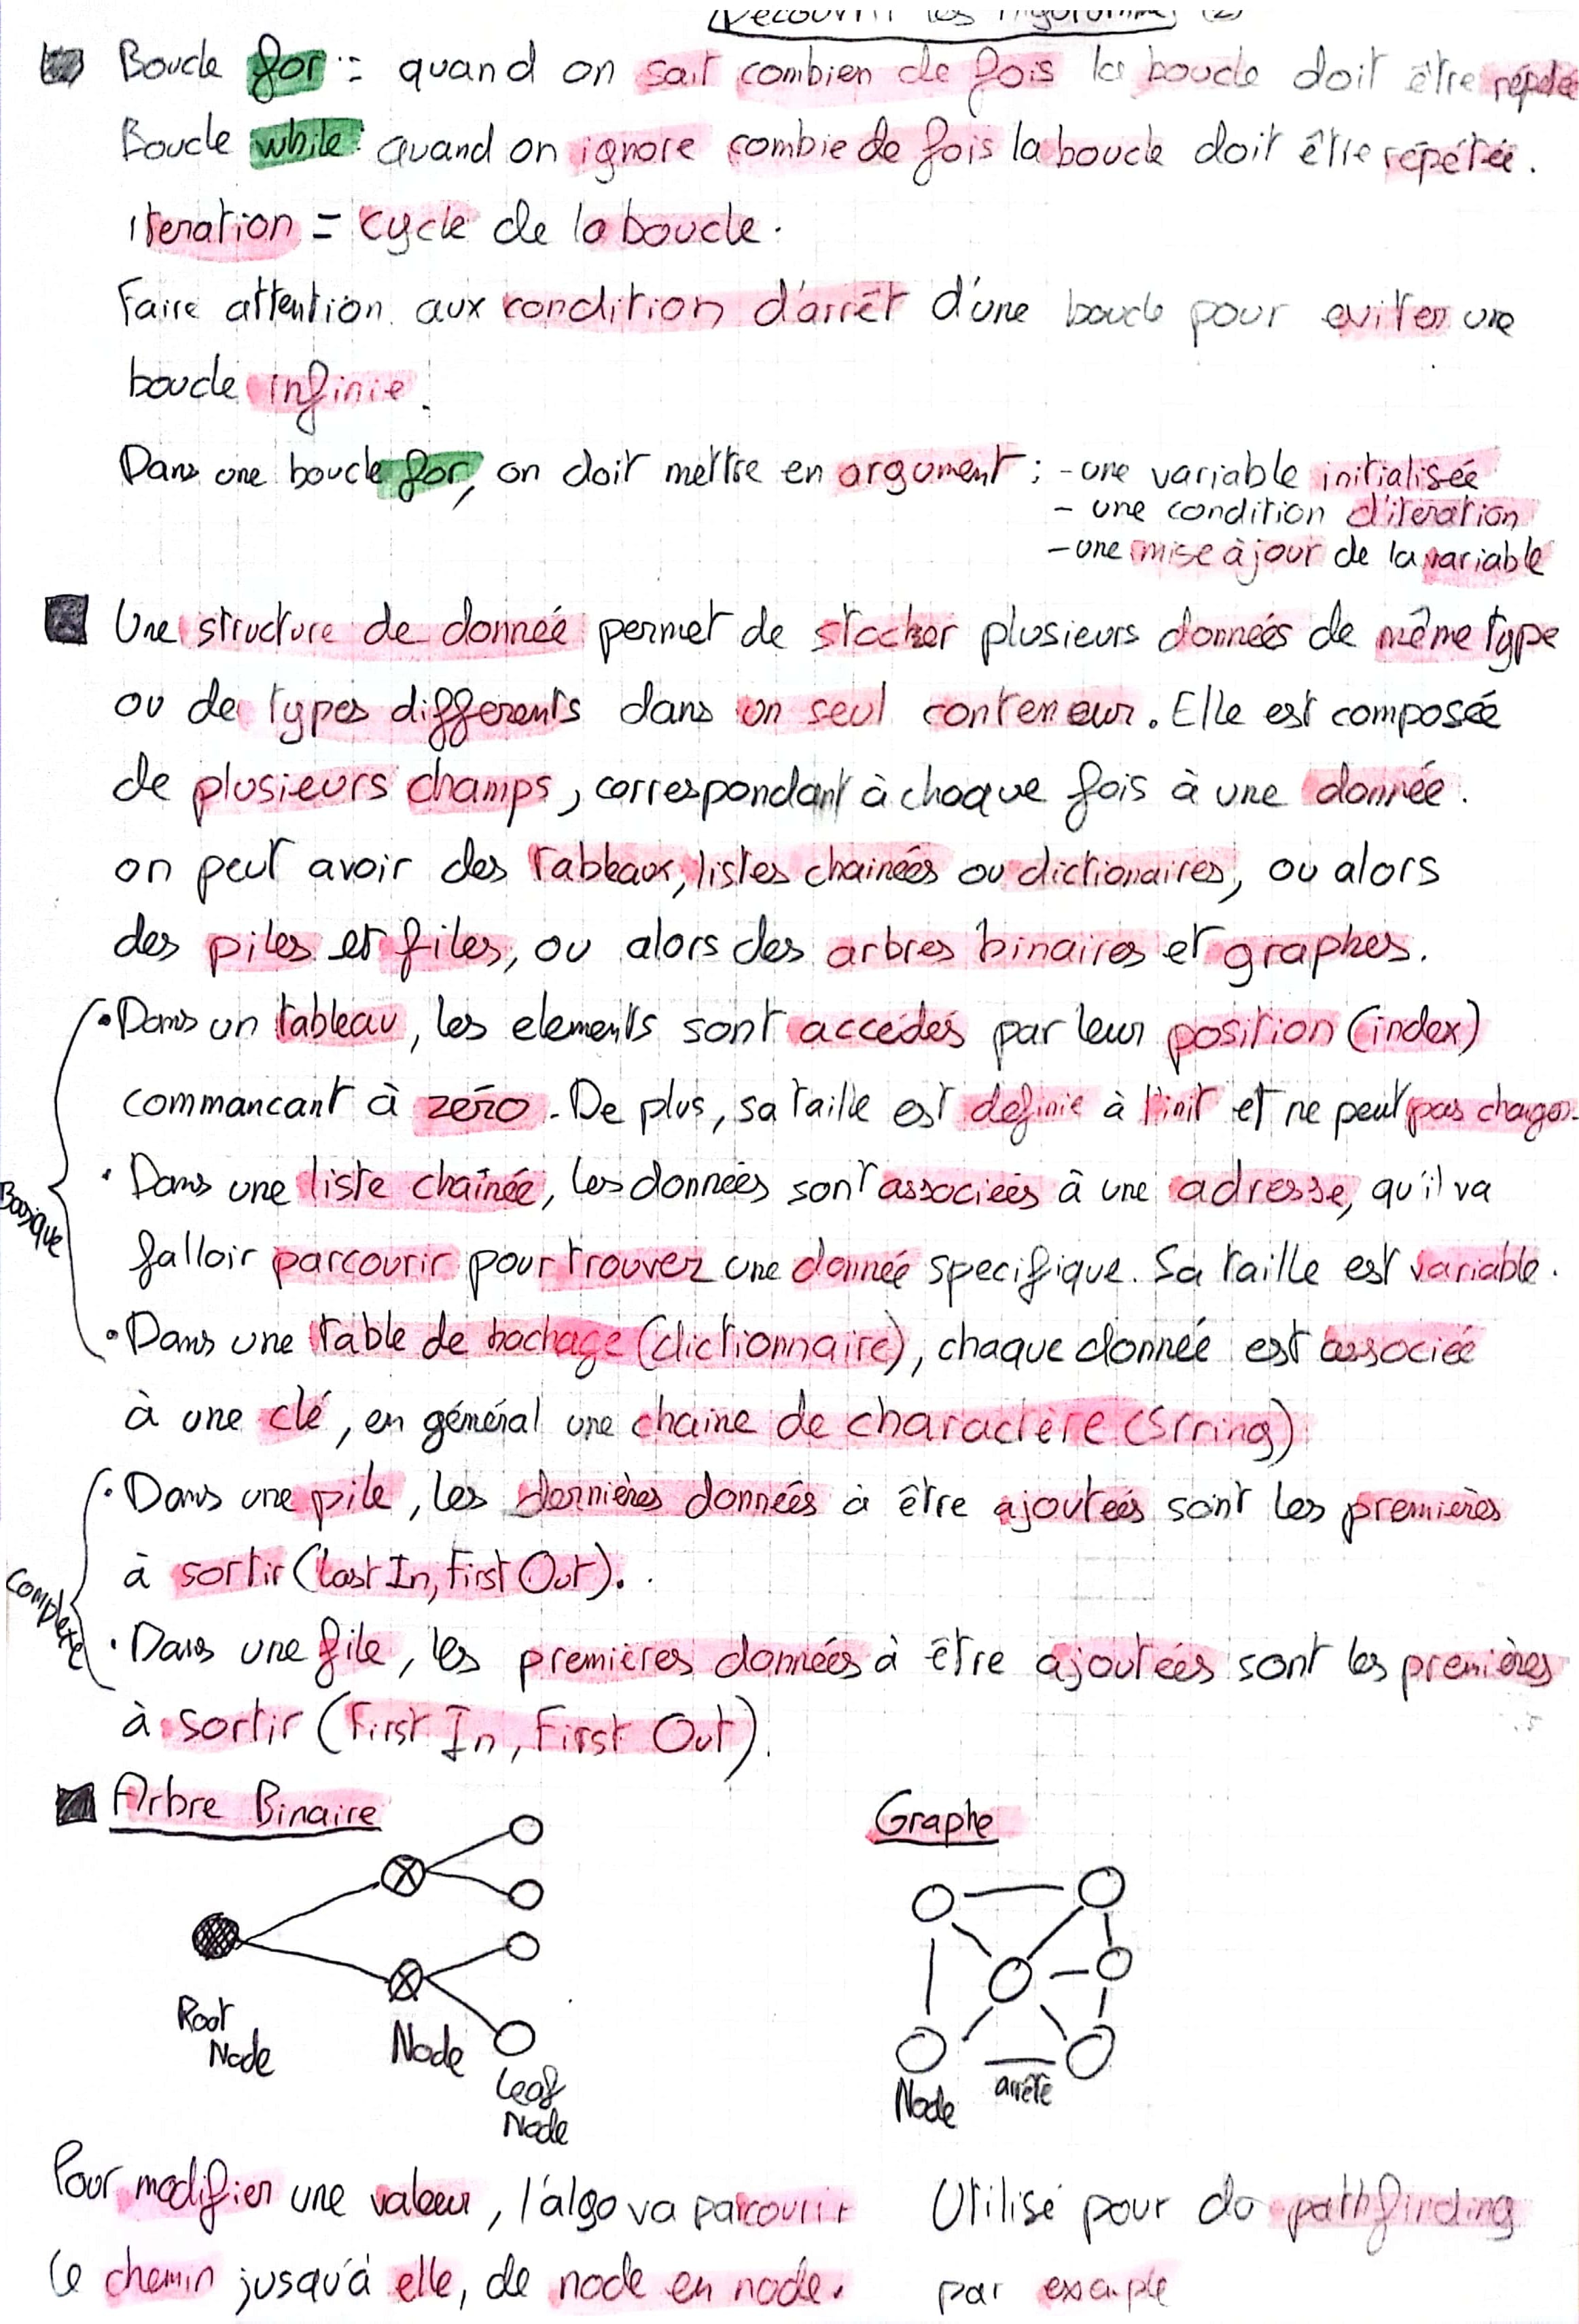 Découvrir les Algorithmes (2)
Boucle for : quand on sait combien de fois la boucle doit être répétée
Boucle while : quand on ignore combie de fois la boucle doit être répétée.
iteration = cycle de la boucle.
Faire attention aux condition d'arrêt d'une boucle pour eviter une
boucle infinie.
Dans une boucle for, on doit mettre en argument : - une variable initialisée
- une condition d'iteration
- une mise à jour de la variable
Une structure de donnée permet de stocker plusieurs données de même type
ou de types differents dans un seul conteneur. Elle est composée
de plusieurs champs, correspondant à chaque fois à une donnée.
on peut avoir des tableaux, listes chainées ou dictionaires, ou alors
des piles et files, ou alors des arbres binaires et graphes.
Basique
• Dans un tableau, les elements sont accédés par leur position (index)
commancant à zéro. De plus, sa taille est definie à l'init et ne peut pas changer.
• Dans une liste chaînée, les données sont associées à une adresse, qu'il va
falloir parcourir pour trouver une donnée specifique. Sa taille est variable.
• Dans une table de hachage (dictionnaire), chaque donnée est associée
à une clé, en général une chaine de charactère (String)
Complexe
• Dans une pile, les dernières données à être ajoutées sont les premières
à sortir (Last In, First Out).
• Dans une file, les premières données à être ajoutées sont les premières
à sortir (First In, First Out).
Arbre Binaire
Graphe
Root
Node
Node
Leaf
Node
Node
arrête
Pour modifier une valeur, l'algo va parcourir
le chemin jusqu'à elle, de node en node.
Utilisé pour du pathfinding
par exemple